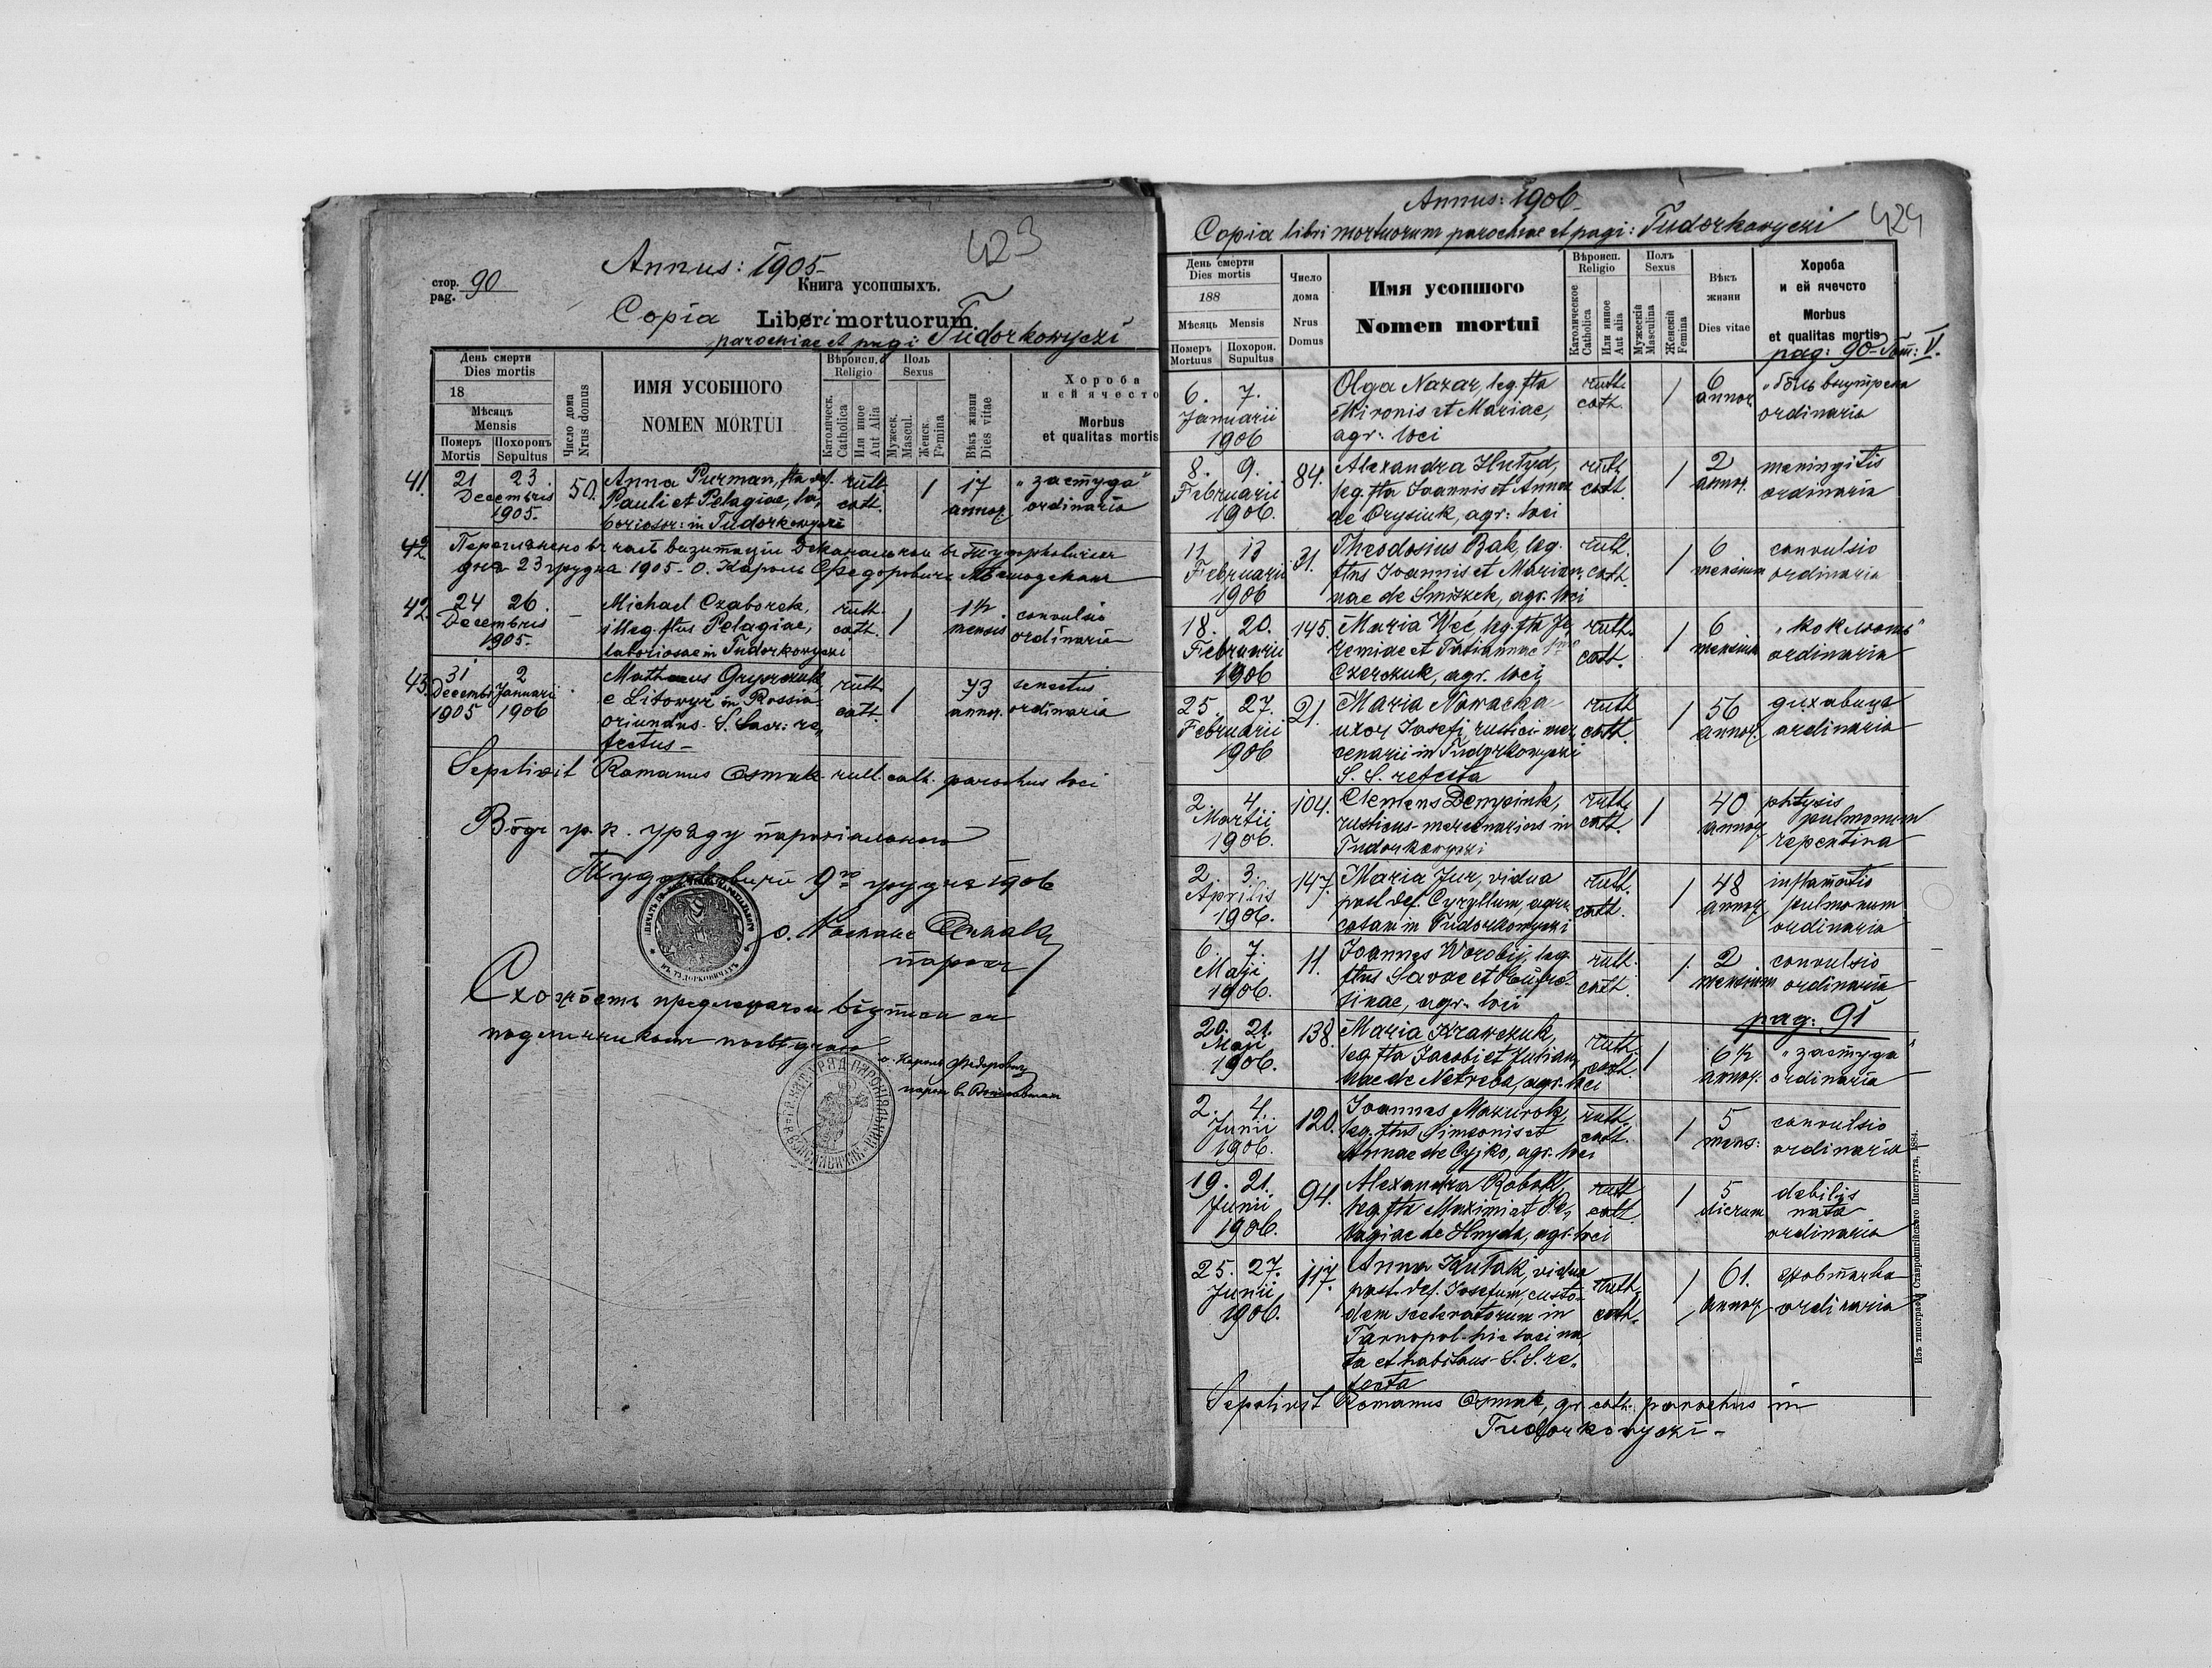 423
Annus: 1905
стор. pag. 90
Книга усопшыхъ.
Copia Libri mortuorum.
parochiae et pagi: Tudorkowyczi
День смерти Dies mortis
18
Мѣсяцъ Mensis
Померъ Mortis
Похоронъ Sepultus
Число дома Nrus domus
ИМЯ УСОБШОГО
NOMEN MORTUI
Вѣроисп. Religio
Католическ. Catholica
Или иное Aut Alia
Полъ Sexus
Мужеск. Mascul.
Женск. Femina
Вѣкъ жизни Dies vitae
Хороба
и ей ячесто
Morbus
et qualitas mortis
41. 21 23. Decembris 1905. 50. Anna Purman, fta def.
Pauli et Pelagiae, la-
boriosor: in Tudorkowyczi
ruth. cath. 1 17 annor. "застуда" ordinaria
42. Переглянено въ часѣ визитаціи деканальнои въ Тудорковичах
дня 23 грудня 1905 - о. Кароль Федорович
42. 24 26. Decembris 1905. - Michael Czaborek,
illeg. ftus Pelagiae,
laboriosae in Tudorkowyczi
ruth. cath. 1 1½ mensis convulsio ordinaria
43. 31 Decembr 1905 2 Januarii 1906 Mathaeus Gryszczuk,
e Litowyz in Rossia
oriundus - S. Sacr: re-
fectus -
ruth. cath. 1 73 annor. senectus ordinaria
Sepelivit Romanus Osmak ruth. cath. parochus loci
Вôдъ гр. к. уряду парохіального
Тудорковичи 9го грудня 1906
о. Романъ Осмакъ
парох
Схожôсть предлежачои вôдписи съ
подлинником посвѣдчаю
о. Кароль Федорович
парох въ
424
Annus: 1906
Copia libri mortuorum parochiae et pagi: Tudorkowyczi
День смерти Dies mortis
188
Мѣсяць Mensis
Померъ Mortuus
Похорон. Supultus
Число дома Nrus Domus
Имя усопшого
Nomen mortui
Вѣроисп. Religio
Католическое Catholica
Или иное Aut alia
Полъ Sexus
Мужескій Masculina
Женскій Femina
Вѣкъ жизни Dies vitae
Хороба
и ей ячечсто
Morbus
et qualitas mortis
pag: 90 Tom: V.
6. 7. Januarii 1906 Olga Nazar, leg. fta
Mironis et Mariae,
agr: loci
ruth. cath. 1 6 annor. "бôль внутрена ordinaria
8. 9. Februarii 1906. 84. Alexandra Hutyd,
leg. fta Joannis et Annae
de Orysiuk, agr: loci
ruth. cath. 1 2 annor. meningitis ordinaria
11 13 Februarii 1906 31. Theodosius Bak, leg.
ftus Joannis et Marian-
nae de Smiszek, agr. loci
ruth. cath. 1 6 mensium convulsio ordinaria
18. 20. Februarii 1906 145. Maria Weć, leg. fta Je-
remiae et Tatiannae
Czerczuk, agr. loci
ruth. cath. 1 6 mensium "коклюшъ" ordinaria
25. 27. Februarii 1906 21. Maria Nowacka
uxor Josefi, rustici-mer-
cenarii in Tudorkowyczi
S. S. refecta
ruth. cath. 1 56 annor. дихавиця ordinaria
2. 4. Martii 1906. 104. Clemens Demysiuk,
rusticus-mercenarius in
Tudorkowyczi
ruth. cath. 1 40 annor. phtysis pulmonum repentina
2. 3. Aprilis 1906. 147. Maria Jur, vidua
post def. Cyryllum, agri-
colam in Tudorkowyczi
ruth. cath. 1 48 annor. inflamatio pulmonum ordinaria
6. 7. Maji 1906. 11. Joannes Worobij, leg.
ftus Savae et Eufro-
sinae, agr. loci
ruth. cath. 1. 2 mensium convulsio ordinaria
pag: 91
20. 21. Maji 1906. 138. Maria Krawczuk,
leg. fta Jacobi et Julian-
nae de Netreba, agr. loci
ruth. cath. 1 6½ annor. "застуда" ordinaria
2. 4. Junii 1906. 120. Joannes Mazurok,
leg. ftus Simeonis et
Annae de Cyjko, agr. loci
ruth. cath. 1 5 mens: convulsio ordinaria
19. 21. Junii 1906. 94. Alexandra Robak,
leg. fta Maximi et Pe-
lagiae de Hnyda, agr. loci
ruth. cath. 1 5 dierum debilis nata ordinaria
25. 27. Junii 1906. 117. Anna Kutak, vidua
post def. Josefum, custo-
dem sceleratorum in
Tarnopol-hic loci na-
ta et habitans - S. S. re-
fecta
ruth. cath. 1 61. annor. ordinaria
Sepelivit Romanus Osmak, gr. cath. parochus in
Tudorkowyczi -
Изъ типографіи Ставропигійского Института, 1884.